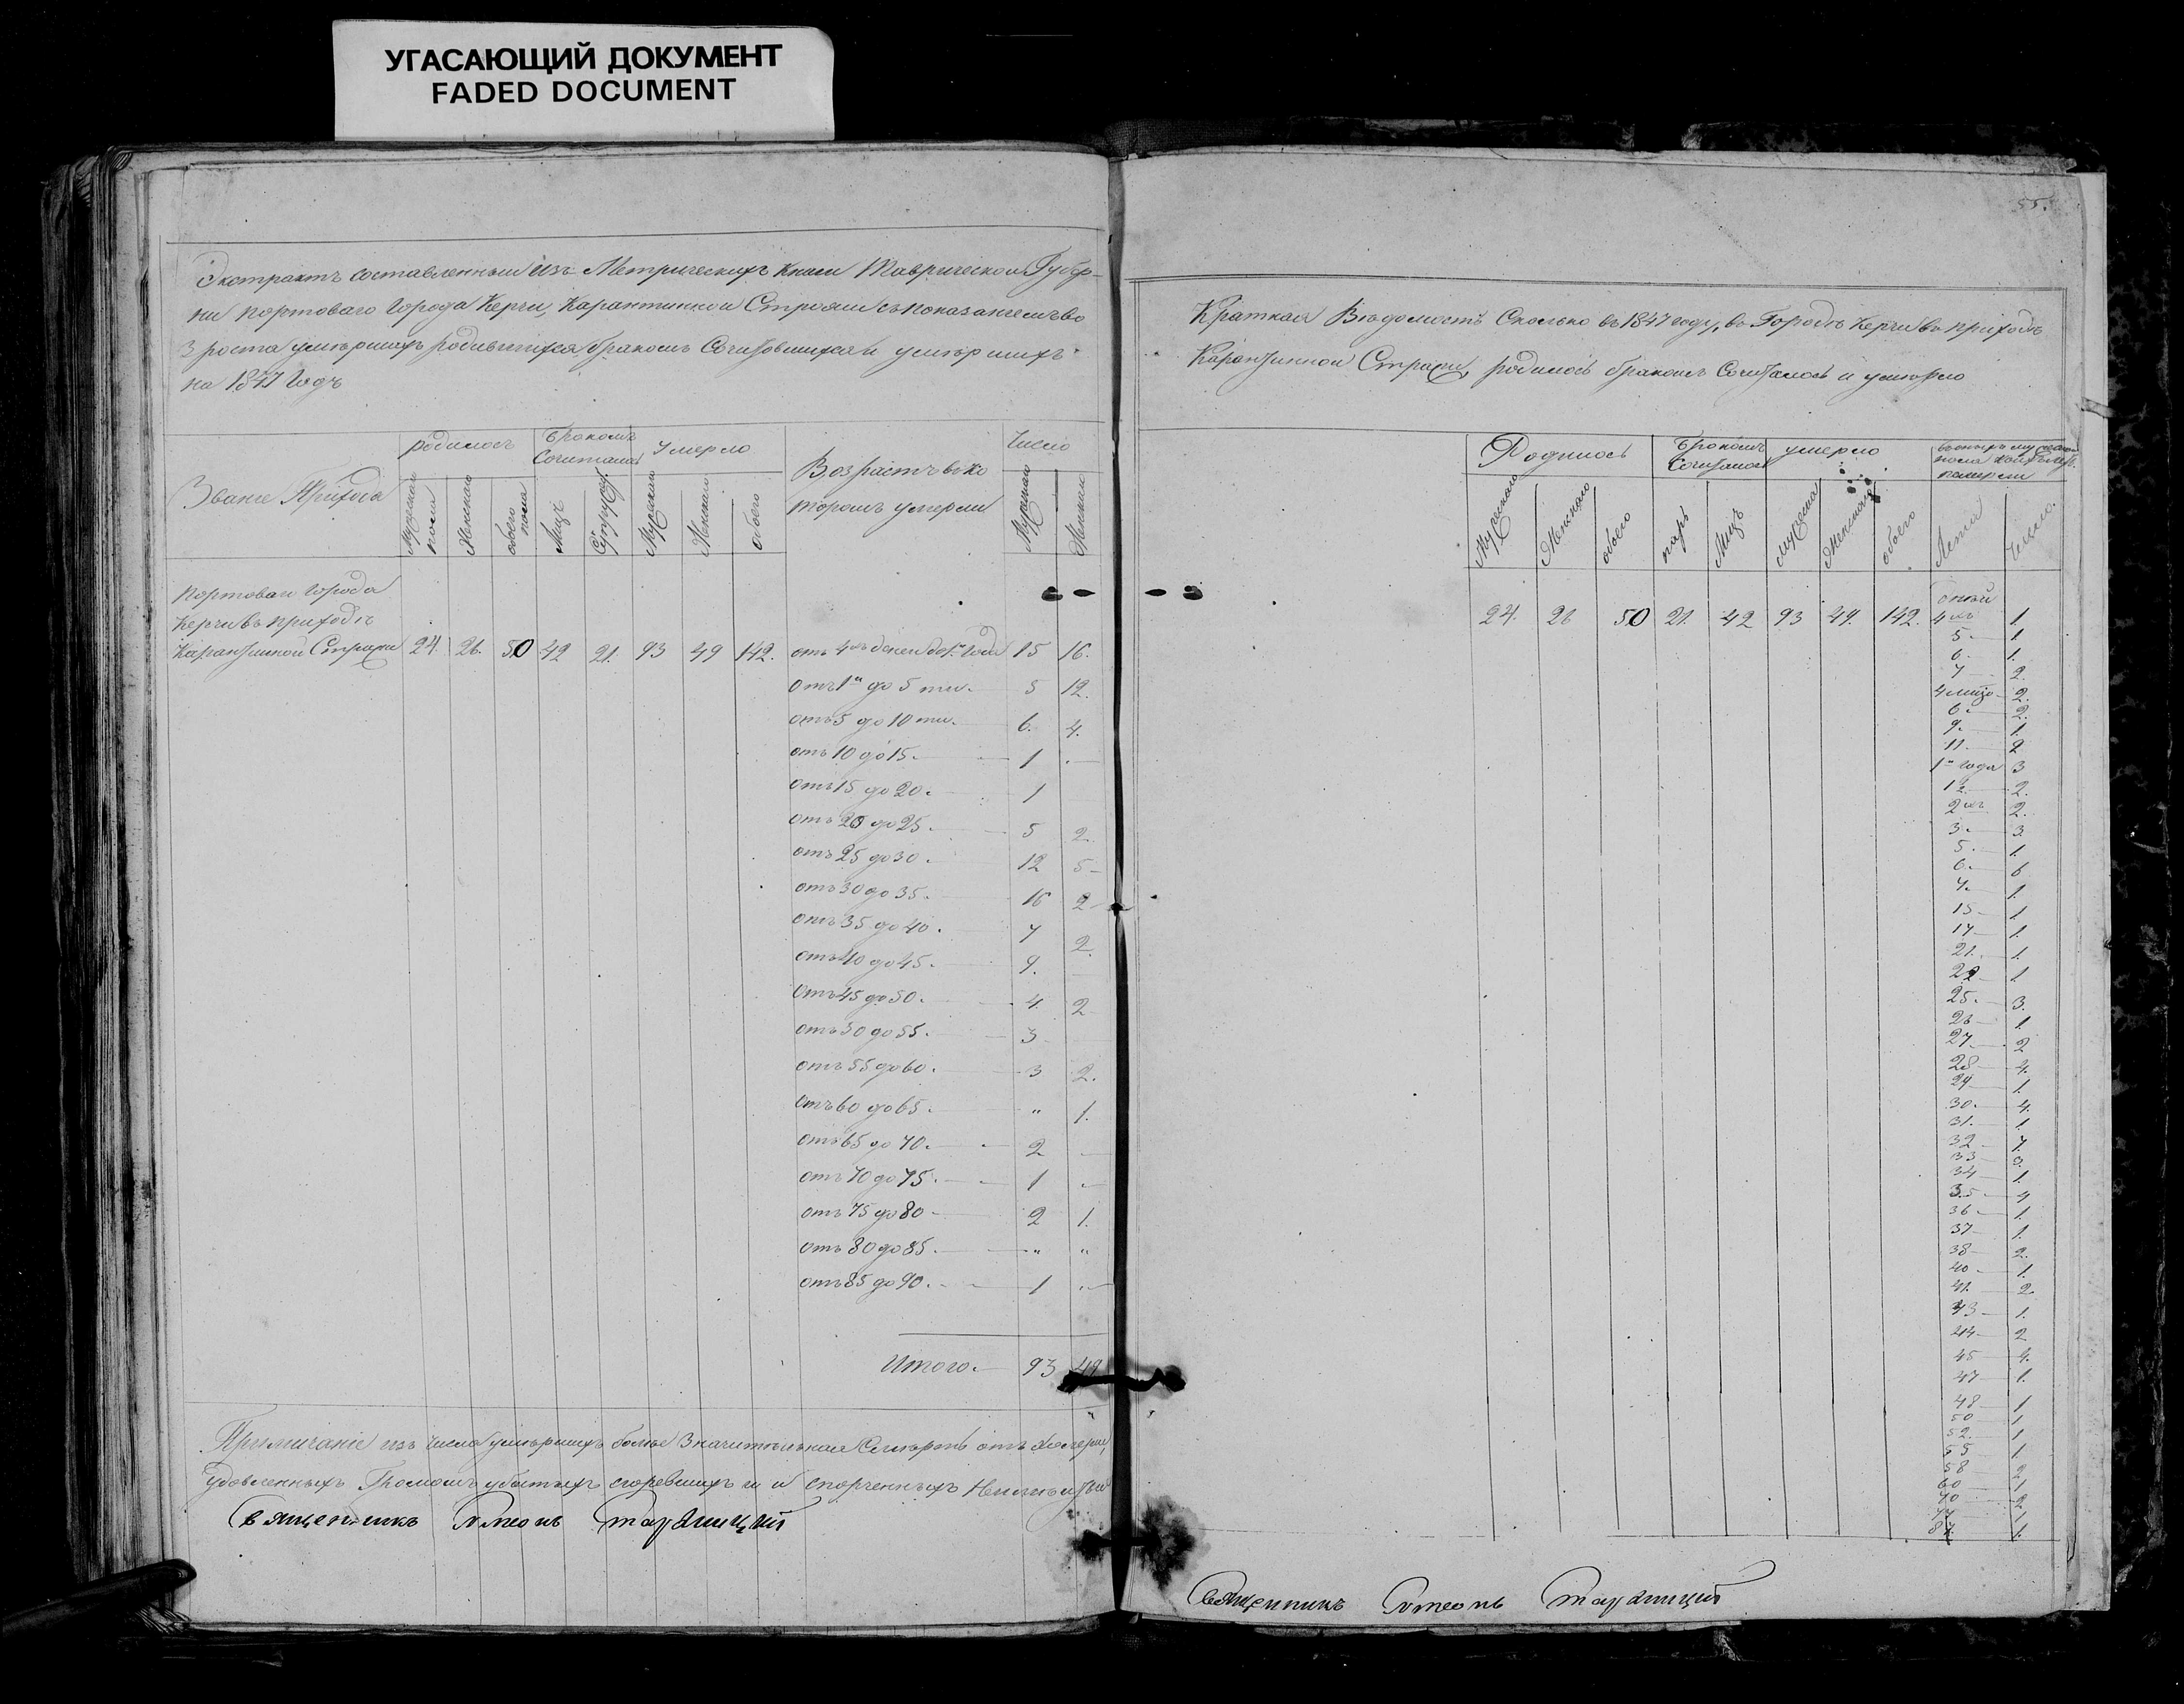 УГАСАЮЩИЙ ДОКУМЕНТ
FADED DOCUMENT
Экстрактъ составленный изъ Метрическихъ книги Таврической Губер-
нии портоваго города Керчи, Карантинной Стражи съ показаниемъ во
зроста умѣршихъ родившихся бракомъ Сочитовшихся и умѣршихъ
на 1847 годъ
Звание Прихода
родилось
Бракомъ Сочиталось
Умерло
Возрастъ въ ко
торомъ умерли
Число
Мужскаго пола
Женскаго
обоего пола
Лицъ
Супруговъ
Мужскаго
Женскаго
обоего
Мужскаго
Женскаго
Портоваго города
Керчи въ приходѣ
Карантинной Стражи 24. 26. 50 42 21. 93 49 142. отъ 4хъ дней до 1го года 15 16.
отъ 1го до 5 ти. 5 12.
отъ 5 до 10 ти. 6. 4.
отъ 10 до 15. 1
отъ 15 до 20. 1
отъ 20 до 25. 5 2.
отъ 25 до 30. 12 5
отъ 30 до 35. 16 2
отъ 35 до 40. 7 2.
отъ 40 до 45. 9.
отъ 45 до 50. 4. 2
отъ 50 до 55. 3
отъ 55 до 60. 3 2.
отъ 60 до 65. " 1.
отъ 65 до 70. 2
отъ 70 до 75. 1
отъ 75 до 80 2 1.
отъ 80 до 85. " "
отъ 85 до 90. 1
Итого. 93 49
Примичаніе изъ числа умѣршихъ болѣе Значительная Смѣрть отъ холеры,
удовленныхъ Громомъ убитыхъ сгоревшихъ и и спорченныхъ
Священникъ Симеонъ
55.
Краткая Вѣдомость Сколько въ 1847 году, въ Городѣ Керчи въ приходѣ
Карантинной Стражи, родилось бракомъ Сочиталось и умѣрло
Родилось
Бракомъ Сочиталось
умерло
Мужскаго
Женскаго
обоего
паръ
Лицъ
мужеска
Женскаго
обоего
Лета
Число.
24. 26 50 21. 42 93 49. 142. 4хъ 1
5. 1
6. 1.
7 2.
4 2.
6. 2.
9. 1.
11. 2
1го года 3
1½ 2.
2хъ 2.
3. 3.
5. 1.
6. 6
7. 1.
15 1
17 1.
21. 1.
22 1
25. 3.
26 1.
27 2
28 4.
29 1.
30. 4.
31. 1.
32 7.
33 3.
34 1.
35 4
36 1.
37 1.
38 2.
40 1.
41. 2.
43 1.
44 2
45 4.
47 1.
48 1
50 1
52. 1
55 1
58 2
60 1
70 2
87. 1.
Священникъ Симеонъ